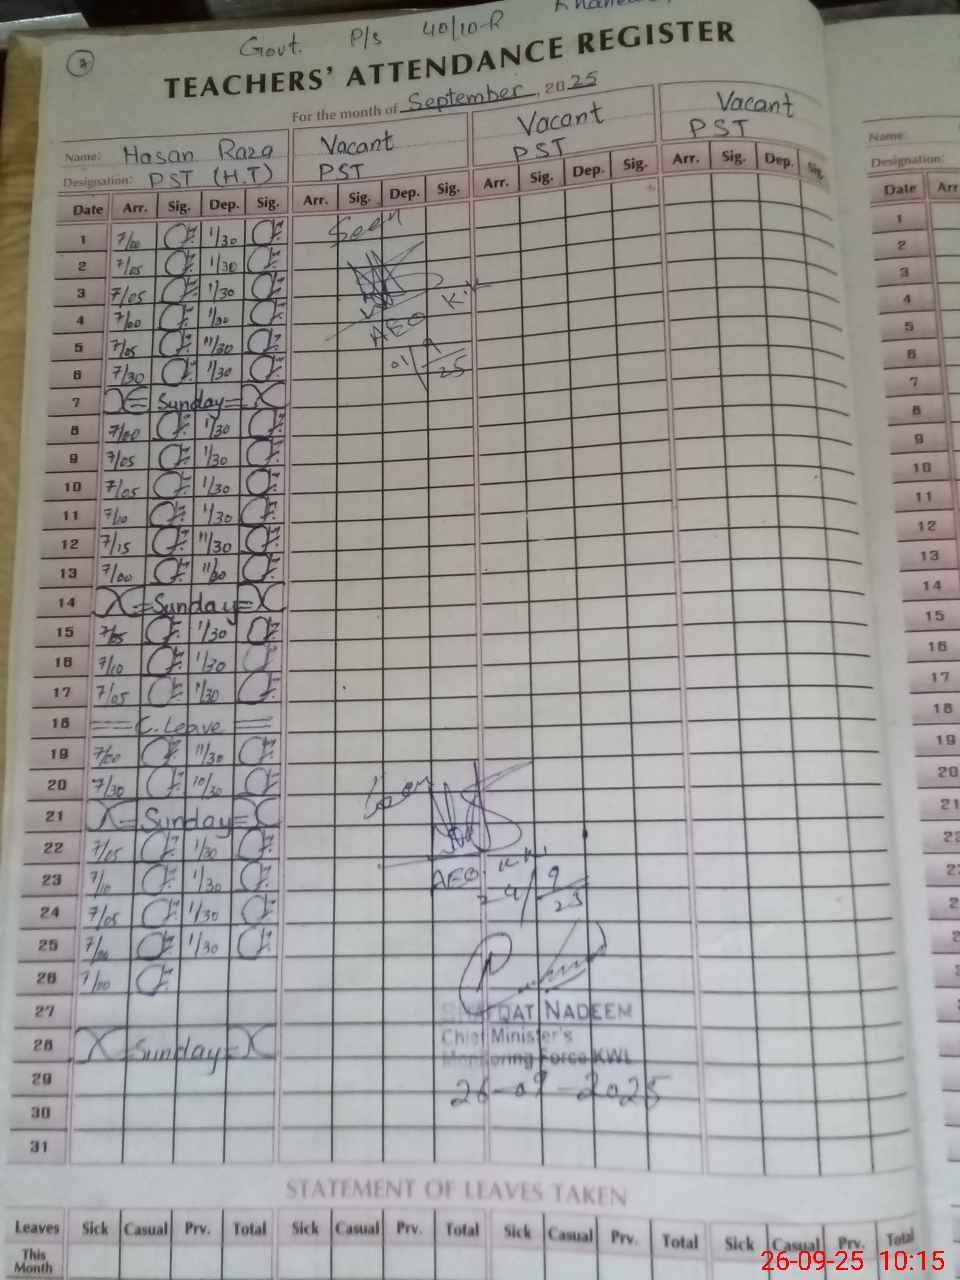 7
Govt. P/s 40/10-R
TEACHERS' ATTENDANCE REGISTER
For the month of September, 2025
Name: Hasan Raza Vacant Vacant Vacant
Designation: PST (H.T) PST PST PST
Date Arr. Sig. Dep. Sig. Arr. Sig. Dep. Sig. Arr. Sig. Dep. Sig. Arr. Sig. Dep. Sig.
1 7/00 1/30 Seen
2 7/05 1/30
3 7/05 1/30
4 7/00 1/30 AEO
5 7/05 11/30 01/9/25
6 7/30 1/30
7 Sunday
8 7/00 1/30
9 7/05 1/30
10 7/05 1/30
11 7/10 1/30
12 7/15 11/30
13 7/00
14 Sunday
15 7/05 1/30
16 7/10 1/30
17 7/05 1/30
18 C. Leave
19 7/00 11/30
20 7/30 10/30 Seen
21 Sunday
22 7/05 1/30
23 7/10 1/30 AEO
24 7/05 1/30 24/9/25
25 7/00 1/30
26 7/00
27 SHAFQAT NADEEM
28 Sunday Chief Minister's
Monitoring Force KWL
29 26-09-2025
30
31
STATEMENT OF LEAVES TAKEN
Leaves Sick Casual Prv. Total Sick Casual Prv. Total Sick Casual Prv. Total Sick Casual Prv. Total
This Month
Name:
Designation:
Date Arr
1
2
3
4
5
6
7
8
9
10
11
12
13
14
15
16
17
18
19
20
21
22
26-09-25 10:15